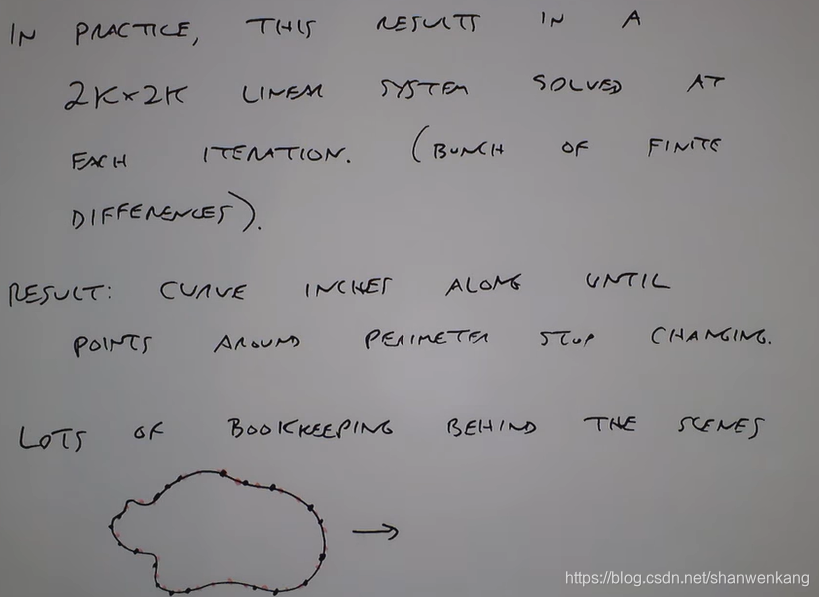 IN PRACTICE, THIS RESULTS IN A
2K×2K LINEAR SYSTEM SOLVED AT
EACH ITERATION. (BUNCH OF FINITE
DIFFERENCES).
RESULT: CURVE INCHES ALONG UNTIL
POINTS AROUND PERIMETER STOP CHANGING.
LOTS OF BOOKKEEPING BEHIND THE SCENES
https://blog.csdn.net/shanwenkang